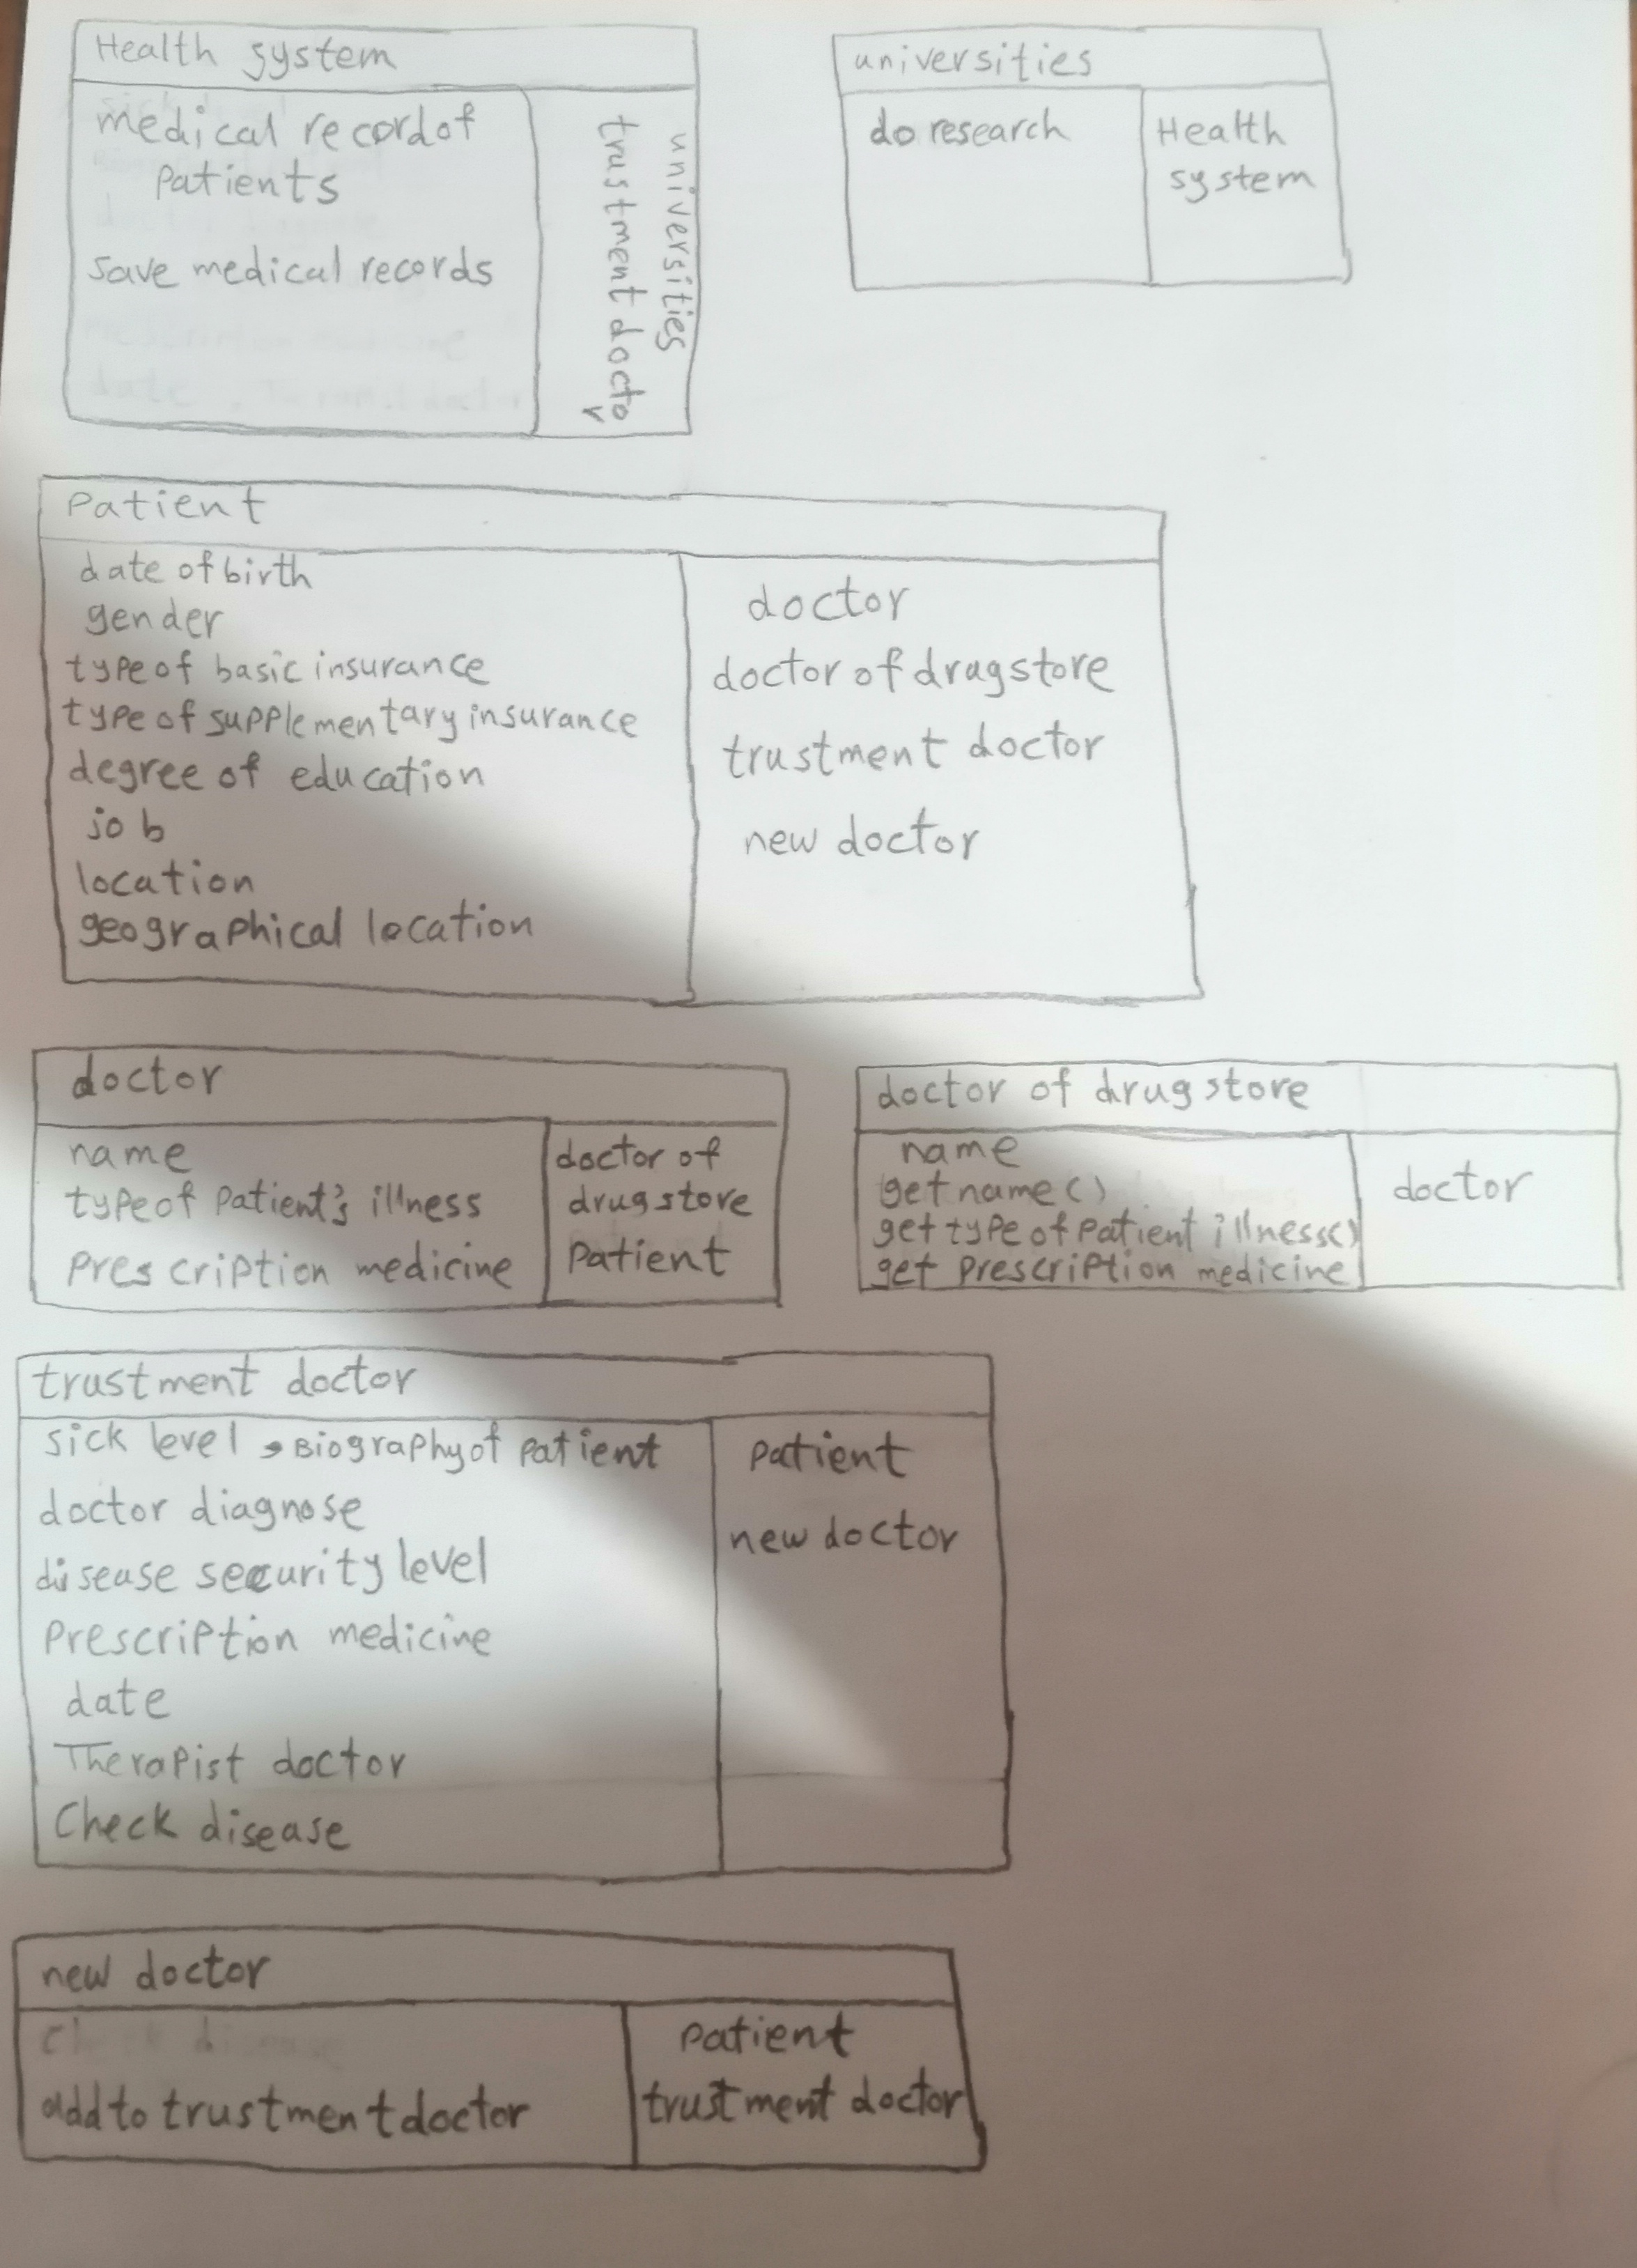 Health system
medical record of
patients
save medical records
universities
trustment docto
r
universities
do research
Health
system
Patient
date of birth
gender
type of basic insurance
type of supplementary insurance
degree of education
job
location
geographical location
doctor
doctor of drugstore
trustment doctor
new doctor
doctor
name
type of patient's illness
prescription medicine
doctor of
drugstore
patient
doctor of drugstore
name
get name()
get type of patient illness()
get prescription medicine
doctor
trustment doctor
sick level , Biography of patient
doctor diagnose
disease security level
prescription medicine
date
Therapist doctor
Check disease
patient
new doctor
new doctor
add to trustment doctor
patient
trustment doctor